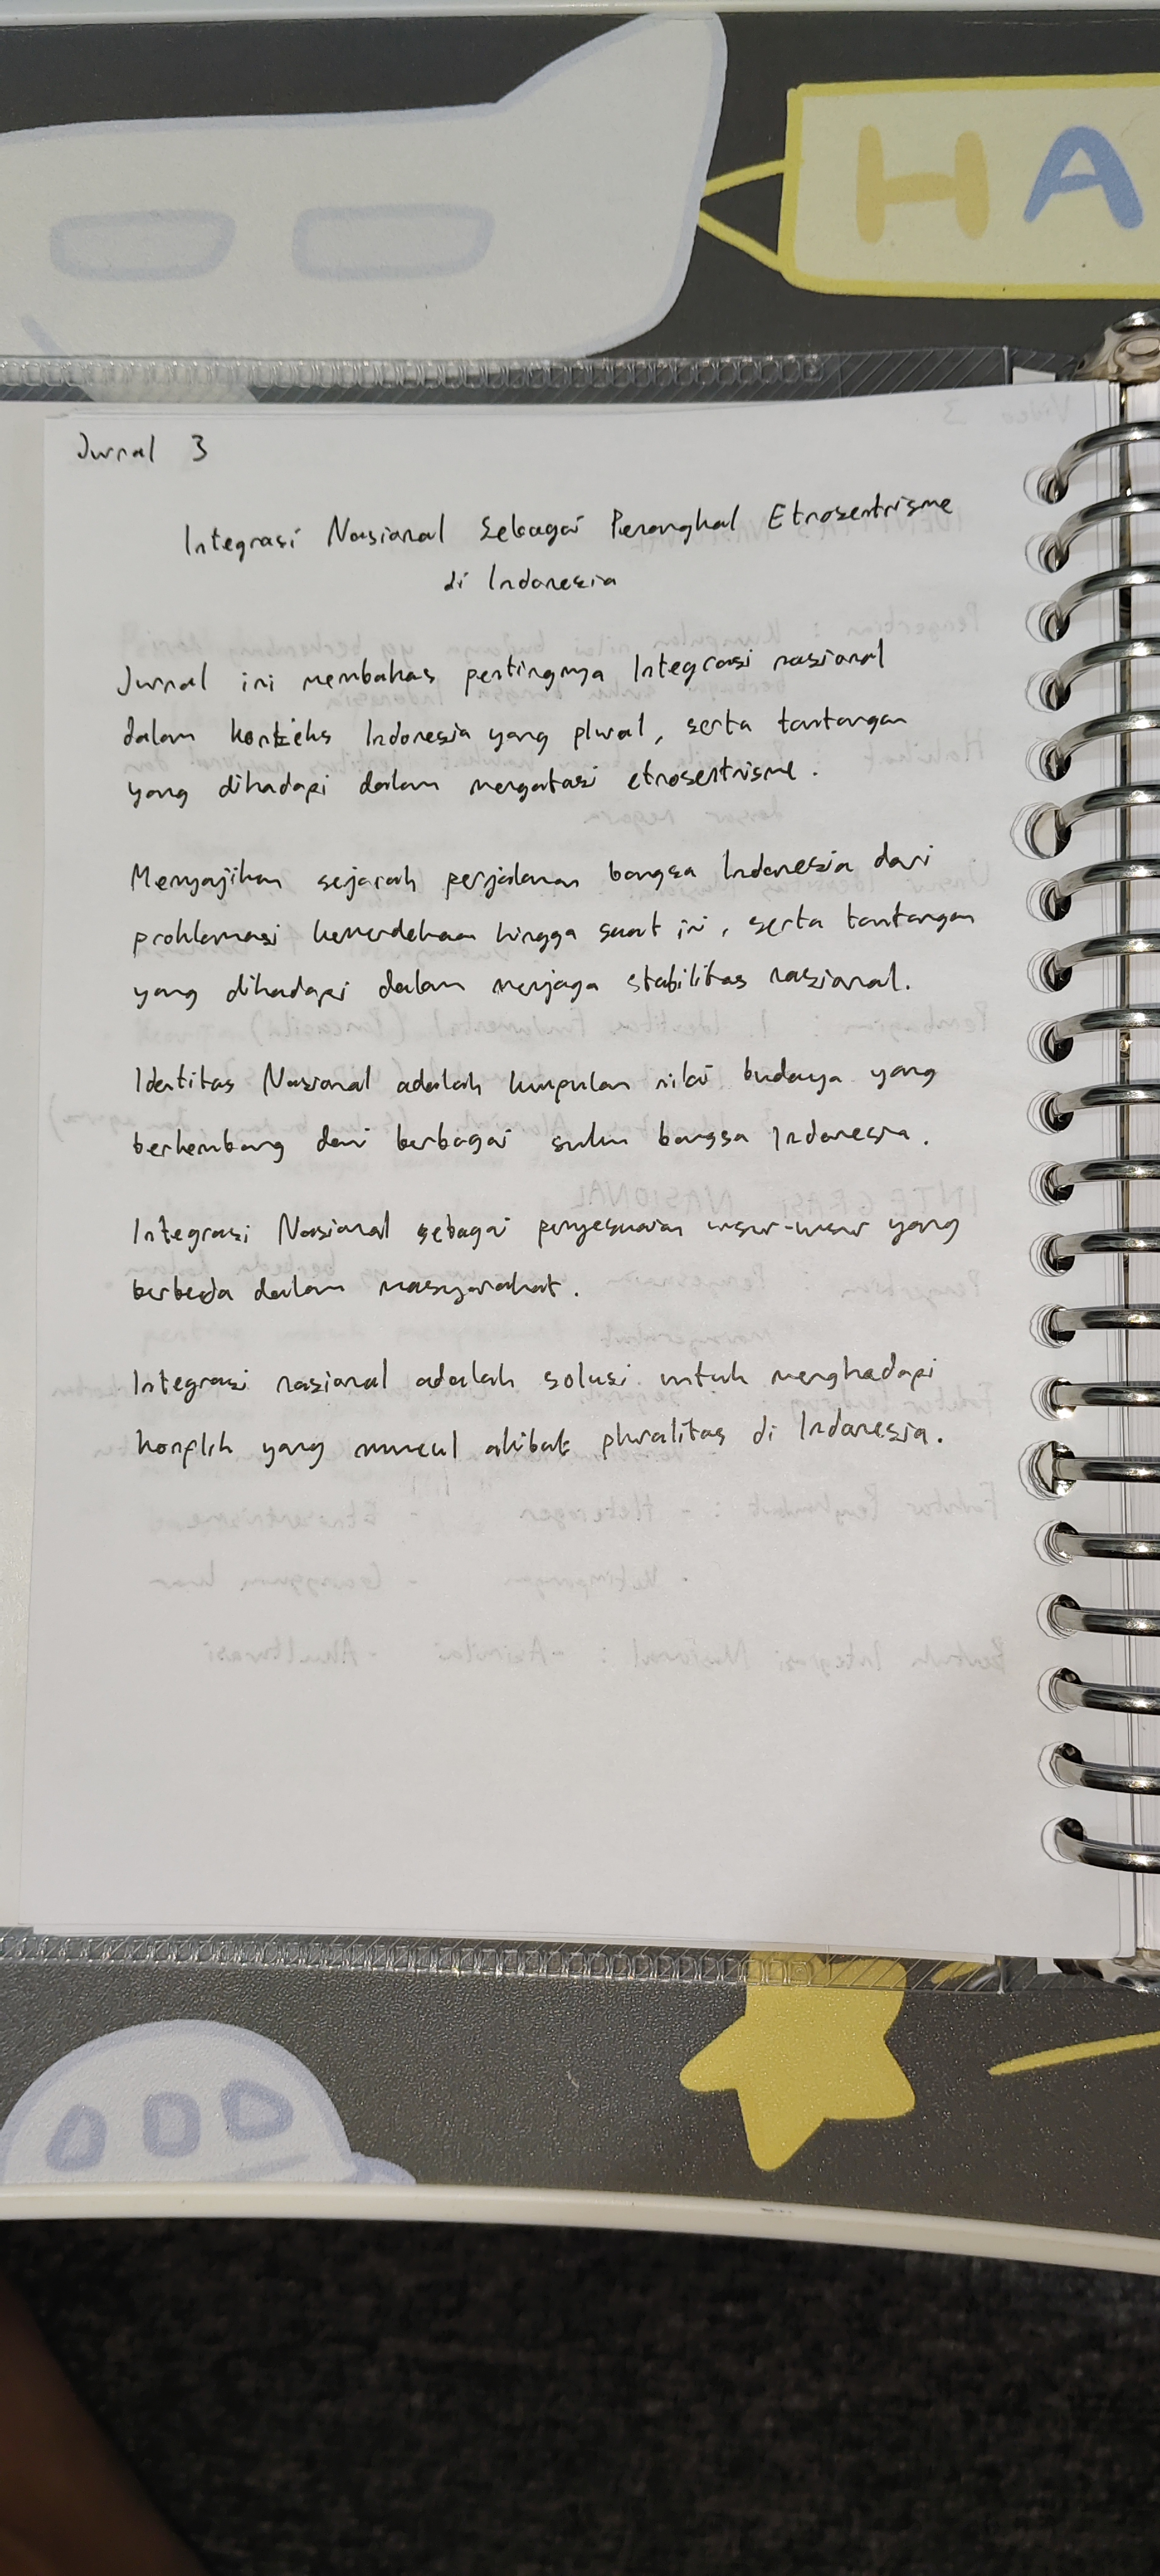 HA
Jurnal 3
Integrasi Nasional Sebagai Penangkal Etnosentrisme
di Indonesia
Jurnal ini membahas pentingnya Integrasi nasional
dalam konteks Indonesia yang plural, serta tantangan
yang dihadapi dalam mengatasi etnosentrisme.
Menyajikan sejarah perjalanan bangsa Indonesia dari
proklamasi kemerdekaan hingga saat ini, serta tantangan
yang dihadapi dalam menjaga stabilitas nasional.
Identitas Nasional adalah kumpulan nilai budaya yang
berkembang dari berbagai suku bangsa Indonesia.
Integrasi Nasional sebagai penyesuaian unsur-unsur yang
berbeda dalam masyarakat.
Integrasi nasional adalah solusi untuk menghadapi
konflik yang muncul akibat pluralitas di Indonesia.